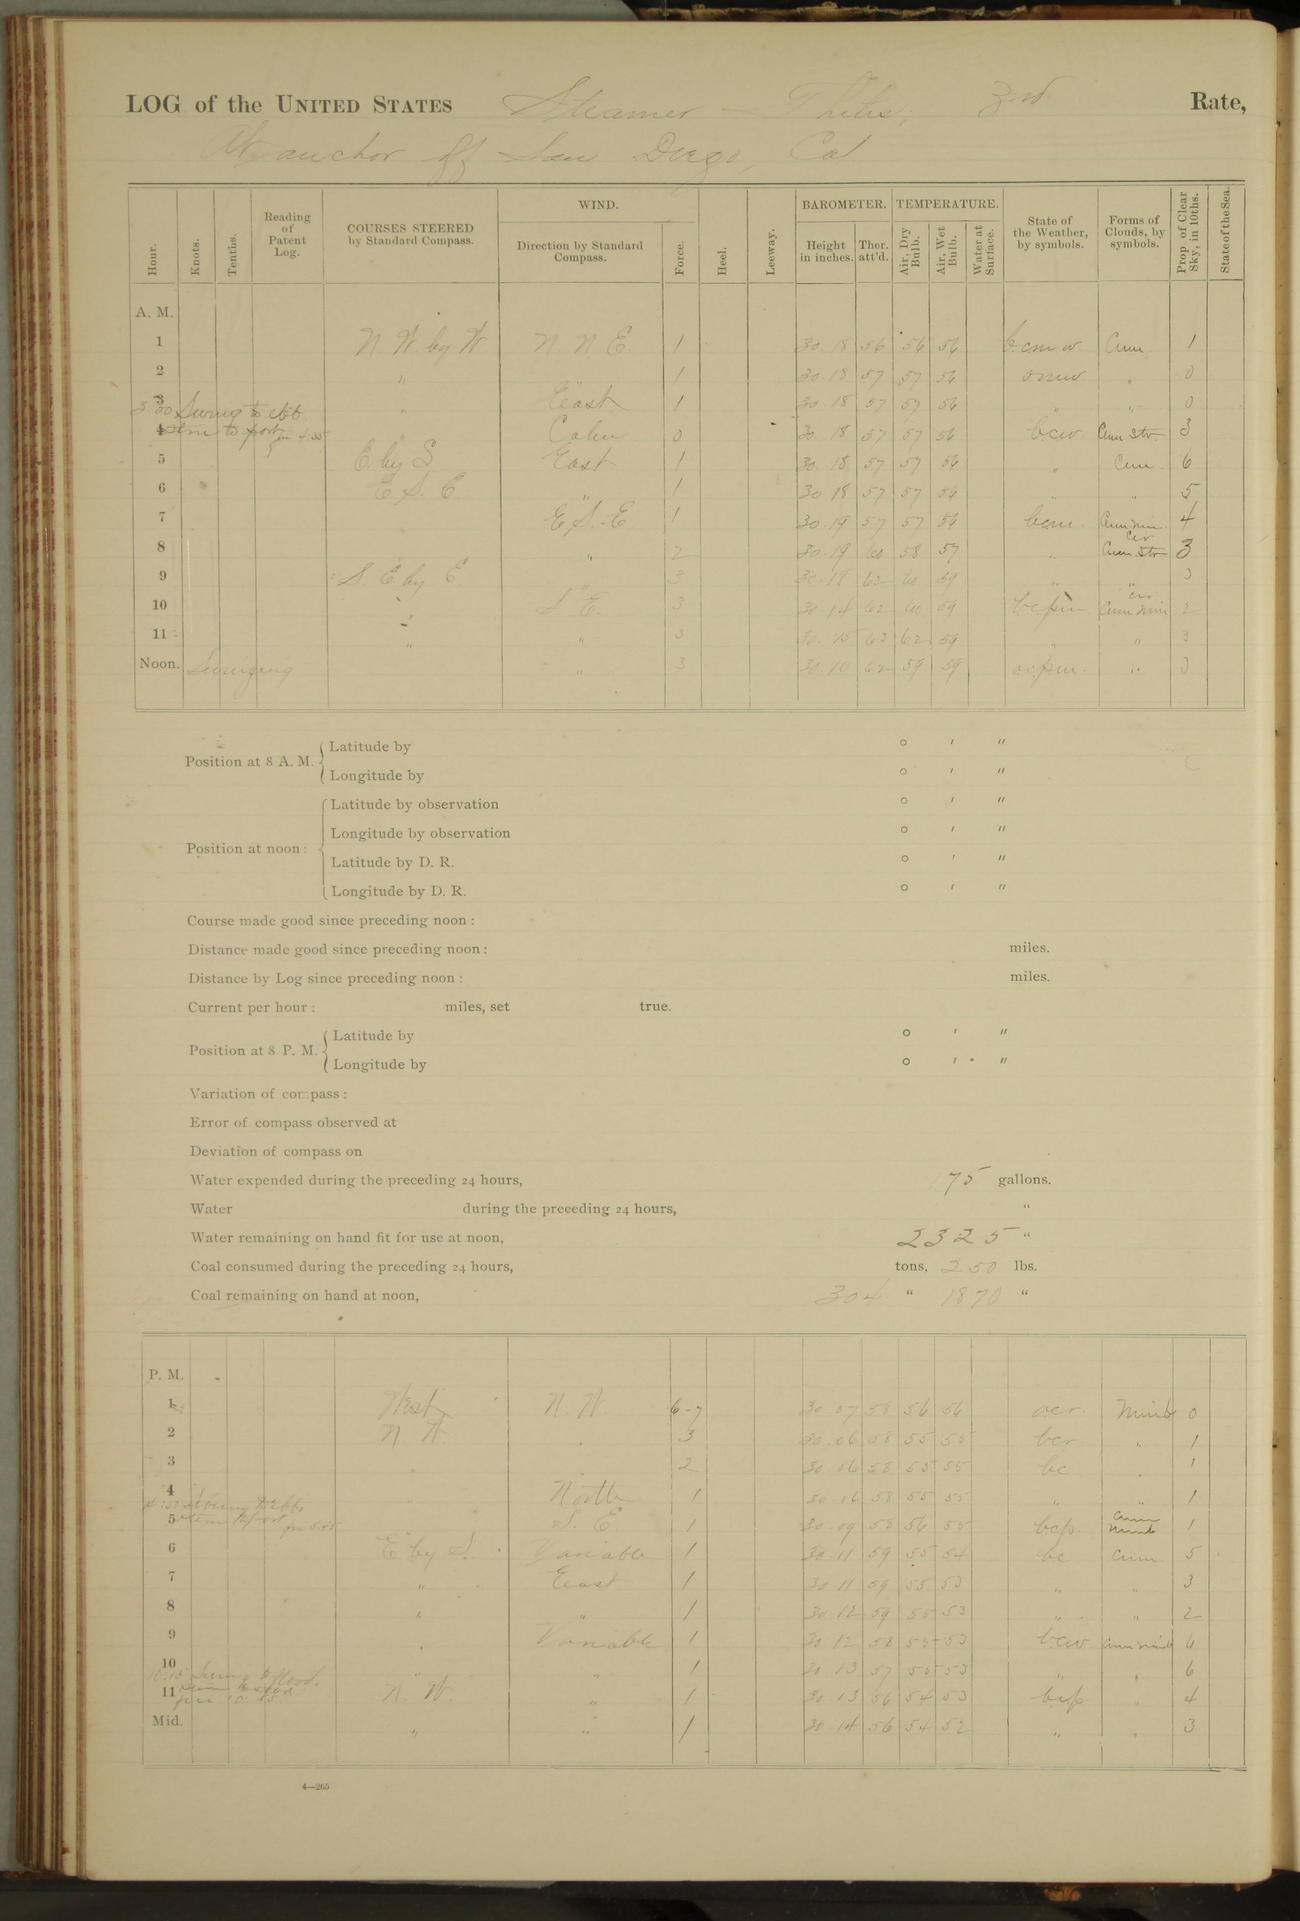 LOG of the UNITED STATES Steamer — Thetis, 3rd Rate,
At anchor off San Diego, Cal
Hour. Knots. Tenths. Reading of Patent Log. COURSES STEERED by Standard Compass. WIND. Direction by Standard Compass. Force. Heel. Leeway. BAROMETER. Height in inches. Ther. att'd. TEMPERATURE. Air, Dry Bulb. Air, Wet Bulb. Water at Surface. State of the Weather, by symbols. Forms of Clouds, by symbols. Prop. of Clear Sky, in 10ths. State of the Sea.
A. M.
1 N W. by W N N E 1 30.18 56 56 56 b.cm.w Cum 1
2 " 1 30.18 57 57 56 omw " 0
3 " East 1 30.18 57 57 56 " " 0
3 30 Swung to ebb
4 " Calm 0 30 18 57 57 56 bcw Cum Str 3
stern to port
5 E. by S East 1 30.18 57 57 56 " Cum 6
6 E S. E " 1 30 18 57 57 56 " " 5
7 E S. E 1 30.19 57 57 56 bcm. Cum Nim 4
8 " 2 30.19 60 58 57 " Cir Cum Str 3
9 S E. by E " 3 30.18 62 60 59 " " 3
10 " S E. 3 30.14 62 60 59 bcpm Cir Cum Nim 2
11 " " 3 30.15 63 62 59 " " 3
Noon. Swinging " 3 30.10 62 59 59 ocpm. " 3
Position at 8 A. M. Latitude by ° ′ ″
Longitude by ° ′ ″
Position at noon: Latitude by observation ° ′ ″
Longitude by observation ° ′ ″
Latitude by D. R. ° ′ ″
Longitude by D. R. ° ′ ″
Course made good since preceding noon:
Distance made good since preceding noon: miles.
Distance by Log since preceding noon: miles.
Current per hour: miles, set true.
Position at 8 P. M. Latitude by ° ′ ″
Longitude by ° ′ ″
Variation of compass:
Error of compass observed at
Deviation of compass on
Water expended during the preceding 24 hours, 175 gallons.
Water during the preceding 24 hours, "
Water remaining on hand fit for use at noon, 2325 "
Coal consumed during the preceding 24 hours, tons, 250 lbs.
Coal remaining on hand at noon, 304 " 1870 "
P. M.
1 West N. W 6-7 30 07 58 56 56 ocr. Nimb 0
2 N W. " 3 30.06 58 55 55 bcr " 1
3 " 2 30.06 58 55 55 bc " 1
4 " North 1 30.06 58 55 55 " " 1
4:30 Swung to ebb
5 S. E. 1 30.09 58 56 55 bcp. Cum Nimb 1
stern to port
6 E by S. Variable 1 30.11 59 55 54 bc Cum 5
7 " East 1 30.11 59 55 53 " " 3
8 " " 1 30.12 59 55 53 " " 2
9 " Variable 1 30 12 58 55 53 bcw Cum Nimb 6
10 " " 1 30 13 57 55 53 " " 6
10.15 Swung to flood.
11 N. W. " 1 30.13 56 54 53 bcp " 4
Mid. " " 1 30.14 56 54 52 " " 3
4—265